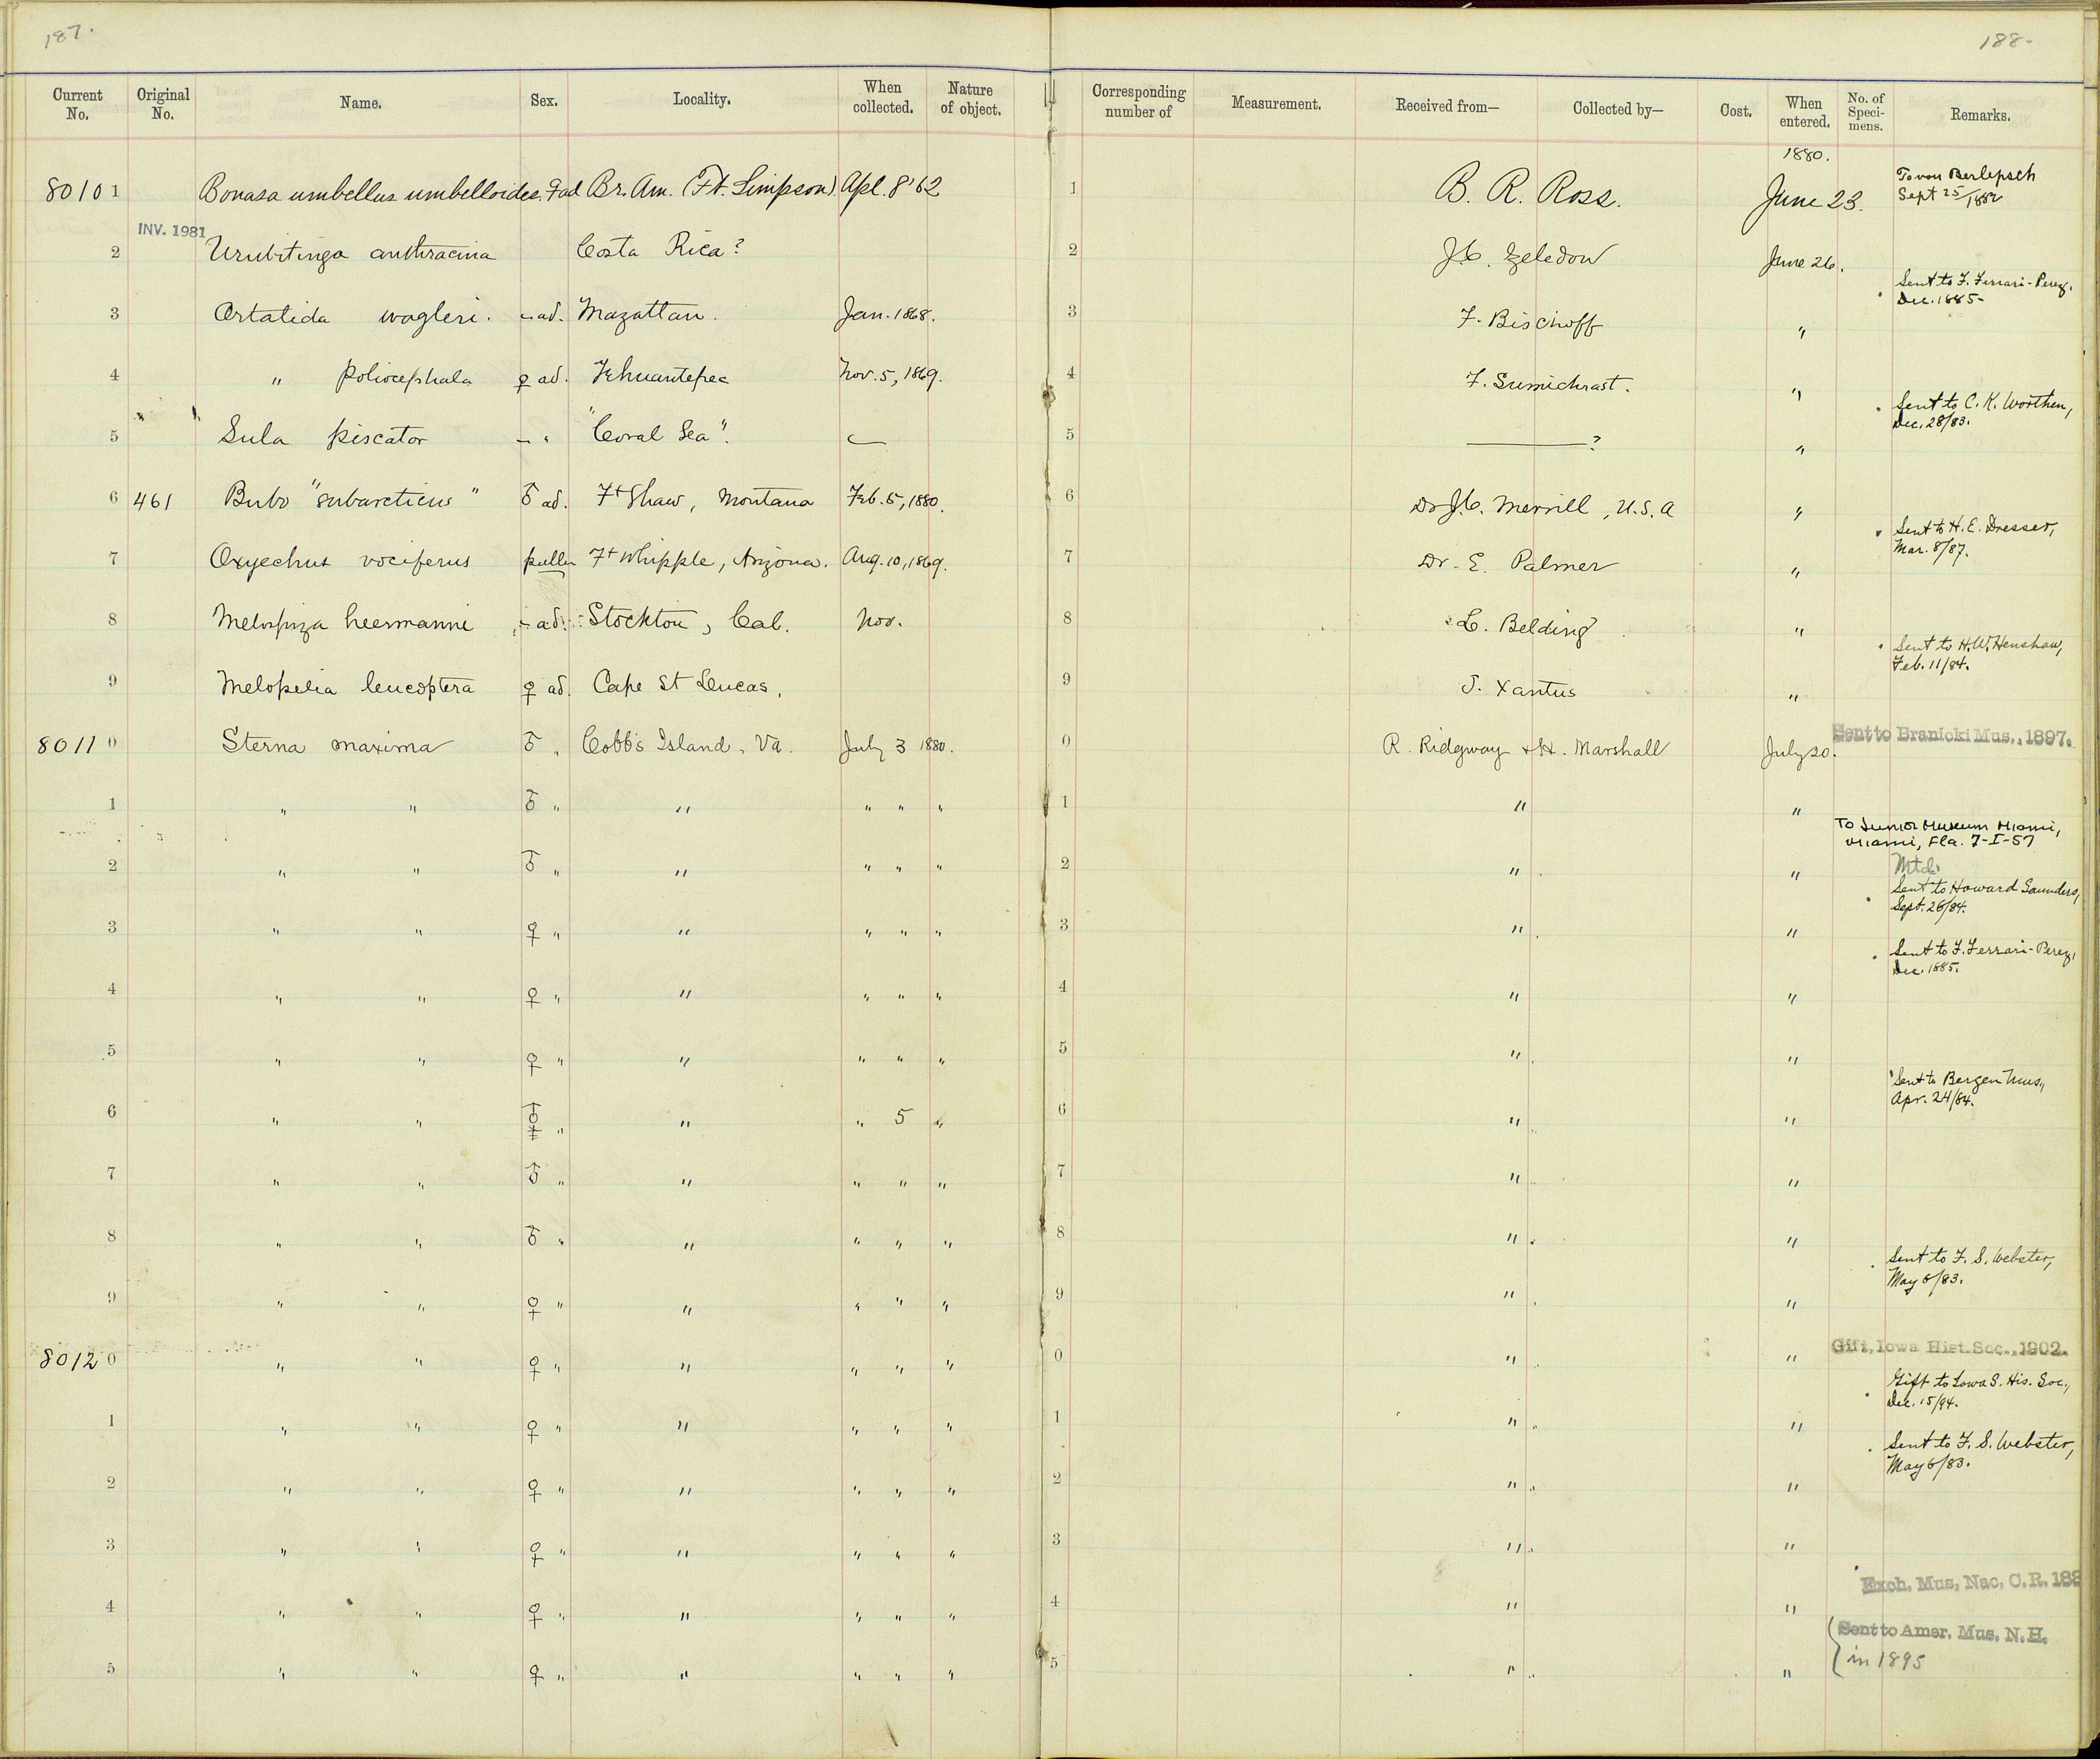 187.
188.
Current No. Original No. Name. Sex. Locality. When collected. Nature of object. Corresponding number of Measurement. Received from— Collected by— Cost. When entered. No. of Specimens. Remarks.
1880.
80101 Bonasa umbellus umbelloides. ♀ad Br. Am. (Ft. Simpson) Apl. 8 '62 1 B. R. Ross. June 23. To von Berlepsch Sept 25/1882
INV. 1981
2 Urubitinga anthracina Costa Rica? 2 J. C. Zeledon June 26.
3 Ortalida wagleri. – ad. Mazatlan. Jan. 1868. 3 F. Bischoff " Sent to F. Ferrari-Perez, Dec. 1885-
4 " poliocephala ♀ ad. Tehuantepec Nov. 5, 1869. 4 F. Sumichrast. "
5 Sula piscator – " "Coral Sea". — 5 ——? " Sent to C. K. Worthen, Dec. 28/83.
6 461 Bubo "subarcticus" ♂ ad. Ft Shaw, Montana Feb. 5, 1880. 6 Dr J. C. Merrill, U.S.A "
7 Oxyechus vociferus pullus Ft Whipple, Arizona. Aug. 10, 1869. 7 Dr. E. Palmer " Sent to H. E. Dresser, Mar. 8/87.
8 Melospiza heermanni – ad. Stockton, Cal. Nov. 8 L. Belding "
9 Melopelia leucoptera ♀ ad. Cape St Lucas. 9 J. Xantus " Sent to H. W. Henshaw, Feb. 11/84.
80110 Sterna maxima ♂ " Cobb's Island, Va. July 3 1880. 0 R. Ridgway & H. Marshall July 20. Sent to Branicki Mus., 1897.
1 " " ♂ " " " " " 1 " "
2 " " ♂ " " " " " 2 " " To Junior Museum Miami, Miami, Fla. 7-I-57 Mtd.
3 " " ♀ " " " " " 3 " " Sent to Howard Saunders, Sept. 26/84.
4 " " ♀ " " " " " 4 " " Sent to F. Ferrari-Perez, Dec. 1885.
5 " " ♀ " " " " " 5 " "
6 " " ⚥ " " " 5 " 6 " " Sent to Bergen Mus., Apr. 24/84.
7 " " ♂ " " " " " 7 " "
8 " " ♂ " " " " " 8 " "
9 " " ♀ " " " " " 9 " " Sent to F. S. Webster, May 6/83.
80120 " " ♀ " " " " " 0 " " Gift, Iowa Hist. Soc., 1902.
1 " " ♀ " " " " " 1 " " Gift to Iowa S. His. Soc., Dec. 15/94.
2 " " ♀ " " " " " 2 " " Sent to F. S. Webster, May 6/83.
3 " " ♀ " " " " " 3 " "
4 " " ♀ " " " " " 4 " " Exch. Mus. Nac. C.R. 188
5 " " ♀ " " " " " 5 " " Sent to Amer. Mus. N.H. in 1895